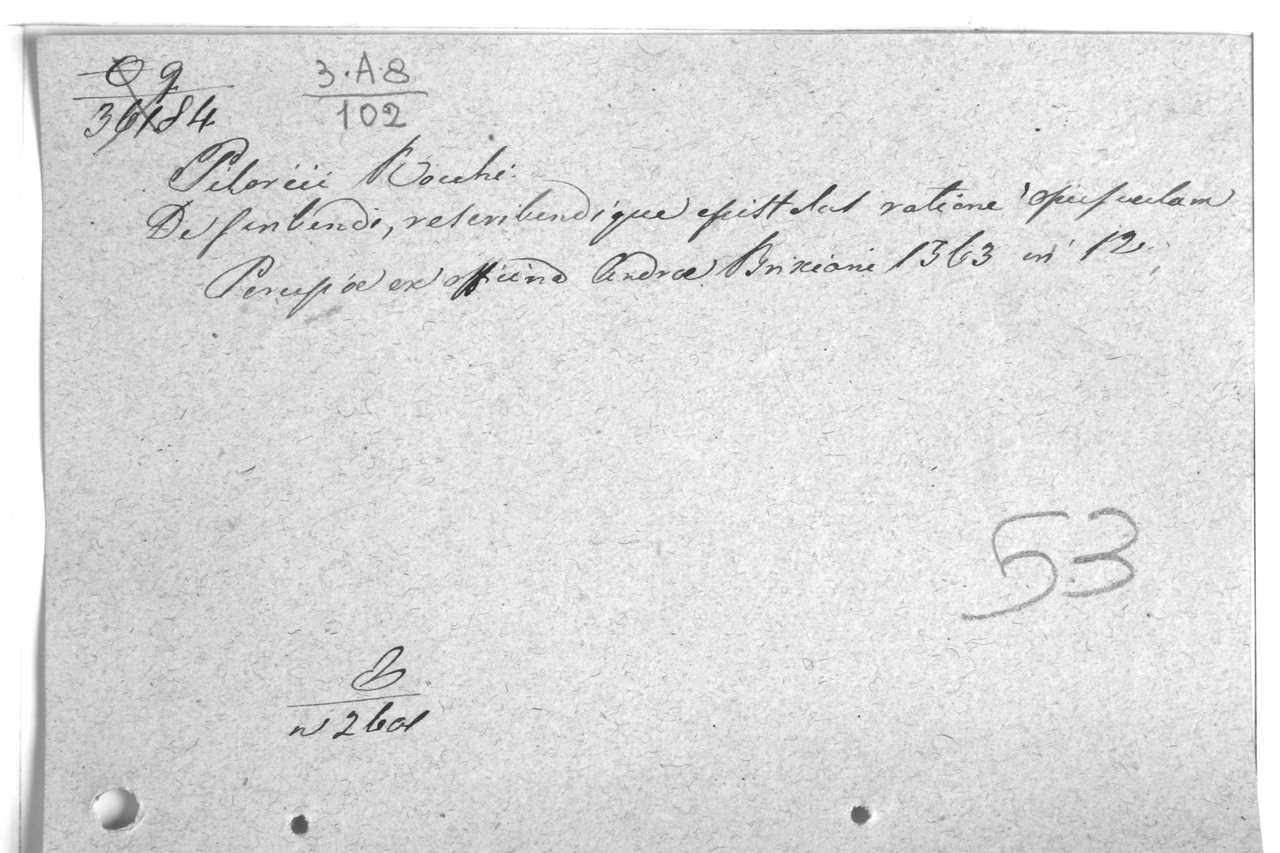 O g
36184
3·A·8
102
Pilorcii Rocchi
De scribendi, rescribendique epistolas ratione opusculum
Perusiæ ex officina Andreæ Brixiani 1363 in 12
53
B
n 2601